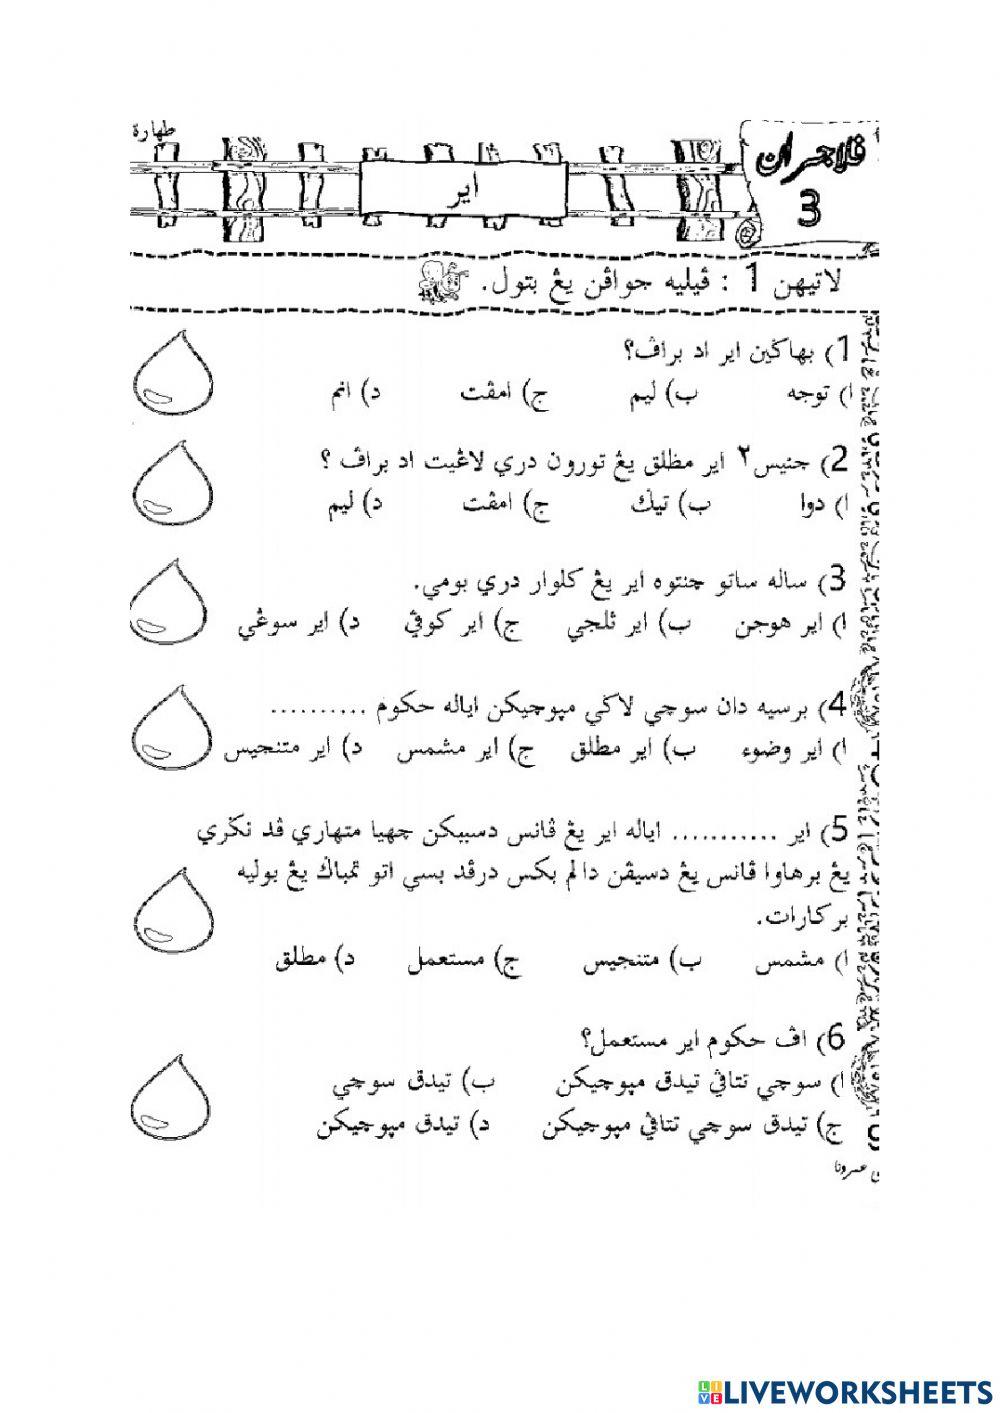 طهارة
ڤلاجرن
3
اير
لاتيهن 1 : ڤيليه جواڤن يڠ بتول.
1) بهاݢين اير اد براڤ؟
ا) توجه ب) ليم ج) امڤت د) انم
2) جنيس٢ اير مطلق يڠ تورون دري لاڠيت اد براڤ ؟
ا) دوا ب) تيݢ ج) امڤت د) ليم
3) ساله ساتو چنتوه اير يڠ كلوار دري بومي.
ا) اير هوجن ب) اير ثلجي ج) اير كوڤي د) اير سوڠي
4) برسيه دان سوچي لاݢي مپوچيكن اياله حكوم ..........
ا) اير وضوء ب) اير مطلق ج) اير مشمس د) اير متنجيس
5) اير ........... اياله اير يڠ ڤانس دسببكن چهيا متهاري ڤد نݢري
يڠ برهاوا ڤانس يڠ دسيڤن دالم بكس درڤد بسي اتو تمباݢ يڠ بوليه
بركارات.
ا) مشمس ب) متنجيس ج) مستعمل د) مطلق
6) اڤ حكوم اير مستعمل؟
ا) سوچي تتاڤي تيدق مپوچيكن ب) تيدق سوچي
ج) تيدق سوچي تتاڤي مپوچيكن د) تيدق مپوچيكن
LIVEWORKSHEETS